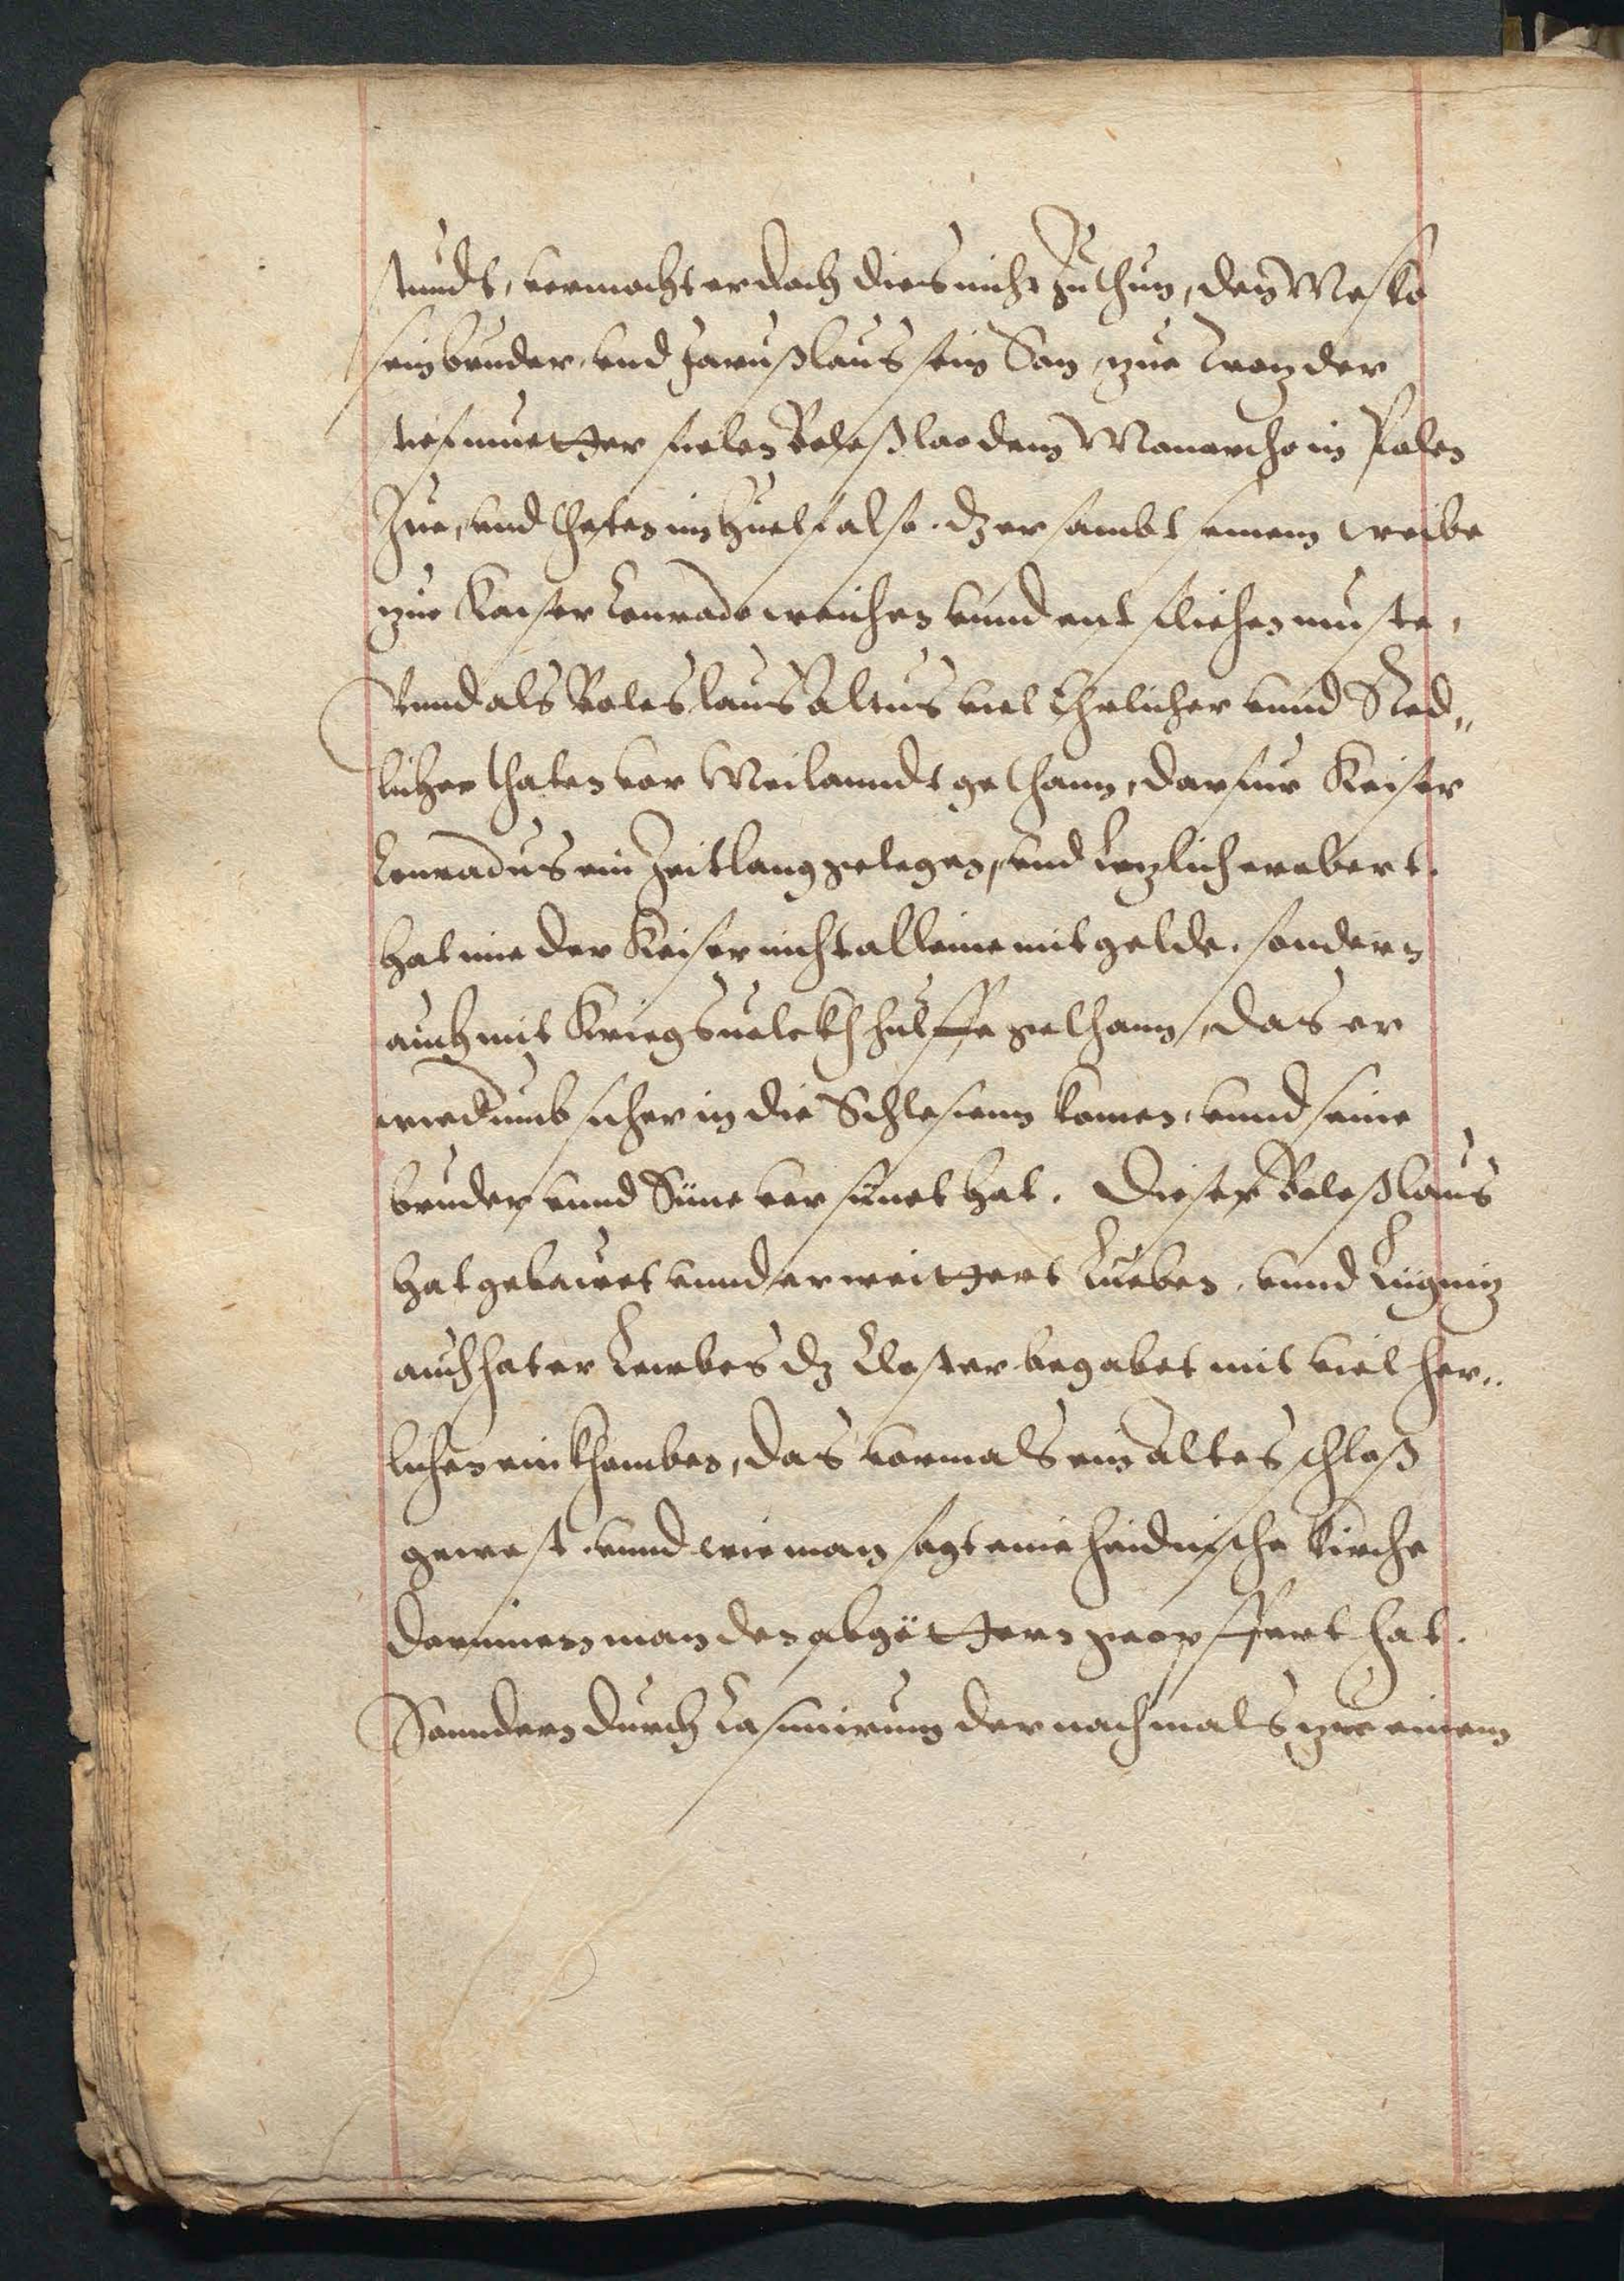 stundt, vermocht er doch dies nicht zu thun, den Mesko
sein bruder, und Jarußlaus sein Son, zue trotz der
stiefmuetter fielen Boleßlao dem Monarcho in Polen
zue, und theten im huelf also. dz er sambt seinem weibe
zue Kaiser Conrado weichen unnd entfliehen muste,
Unnd als Boleslaus Altus viel Ehrlicher unnd Red„
licher thaten vor Meilanndt gethann, darfur Keiser
Conradus ein Zeitlang gelegen, und letzlich erobert.
hat ime der Keiser nicht alleine mit gelde, sondern
auch mit Kriegsuolckh hulffe gethann, das er
wiedrumb sicher in die Schlesienn komen, unnd seine
bruder unnd Süne versünet hat. Dieser Boleßlaus
hat gebauet unnd erweittert Lueben, unnd Liignitz
auch hat er Leubes dz Closter begabet mit viel her„
lichen einkhomben, das vormals ein altes schloß
gewest, unnd wie man sagt eine heidnische kirche
darinnen man den abgöttern geopffert hat.
Sonndern durch Casimirum der nachmals zue einem